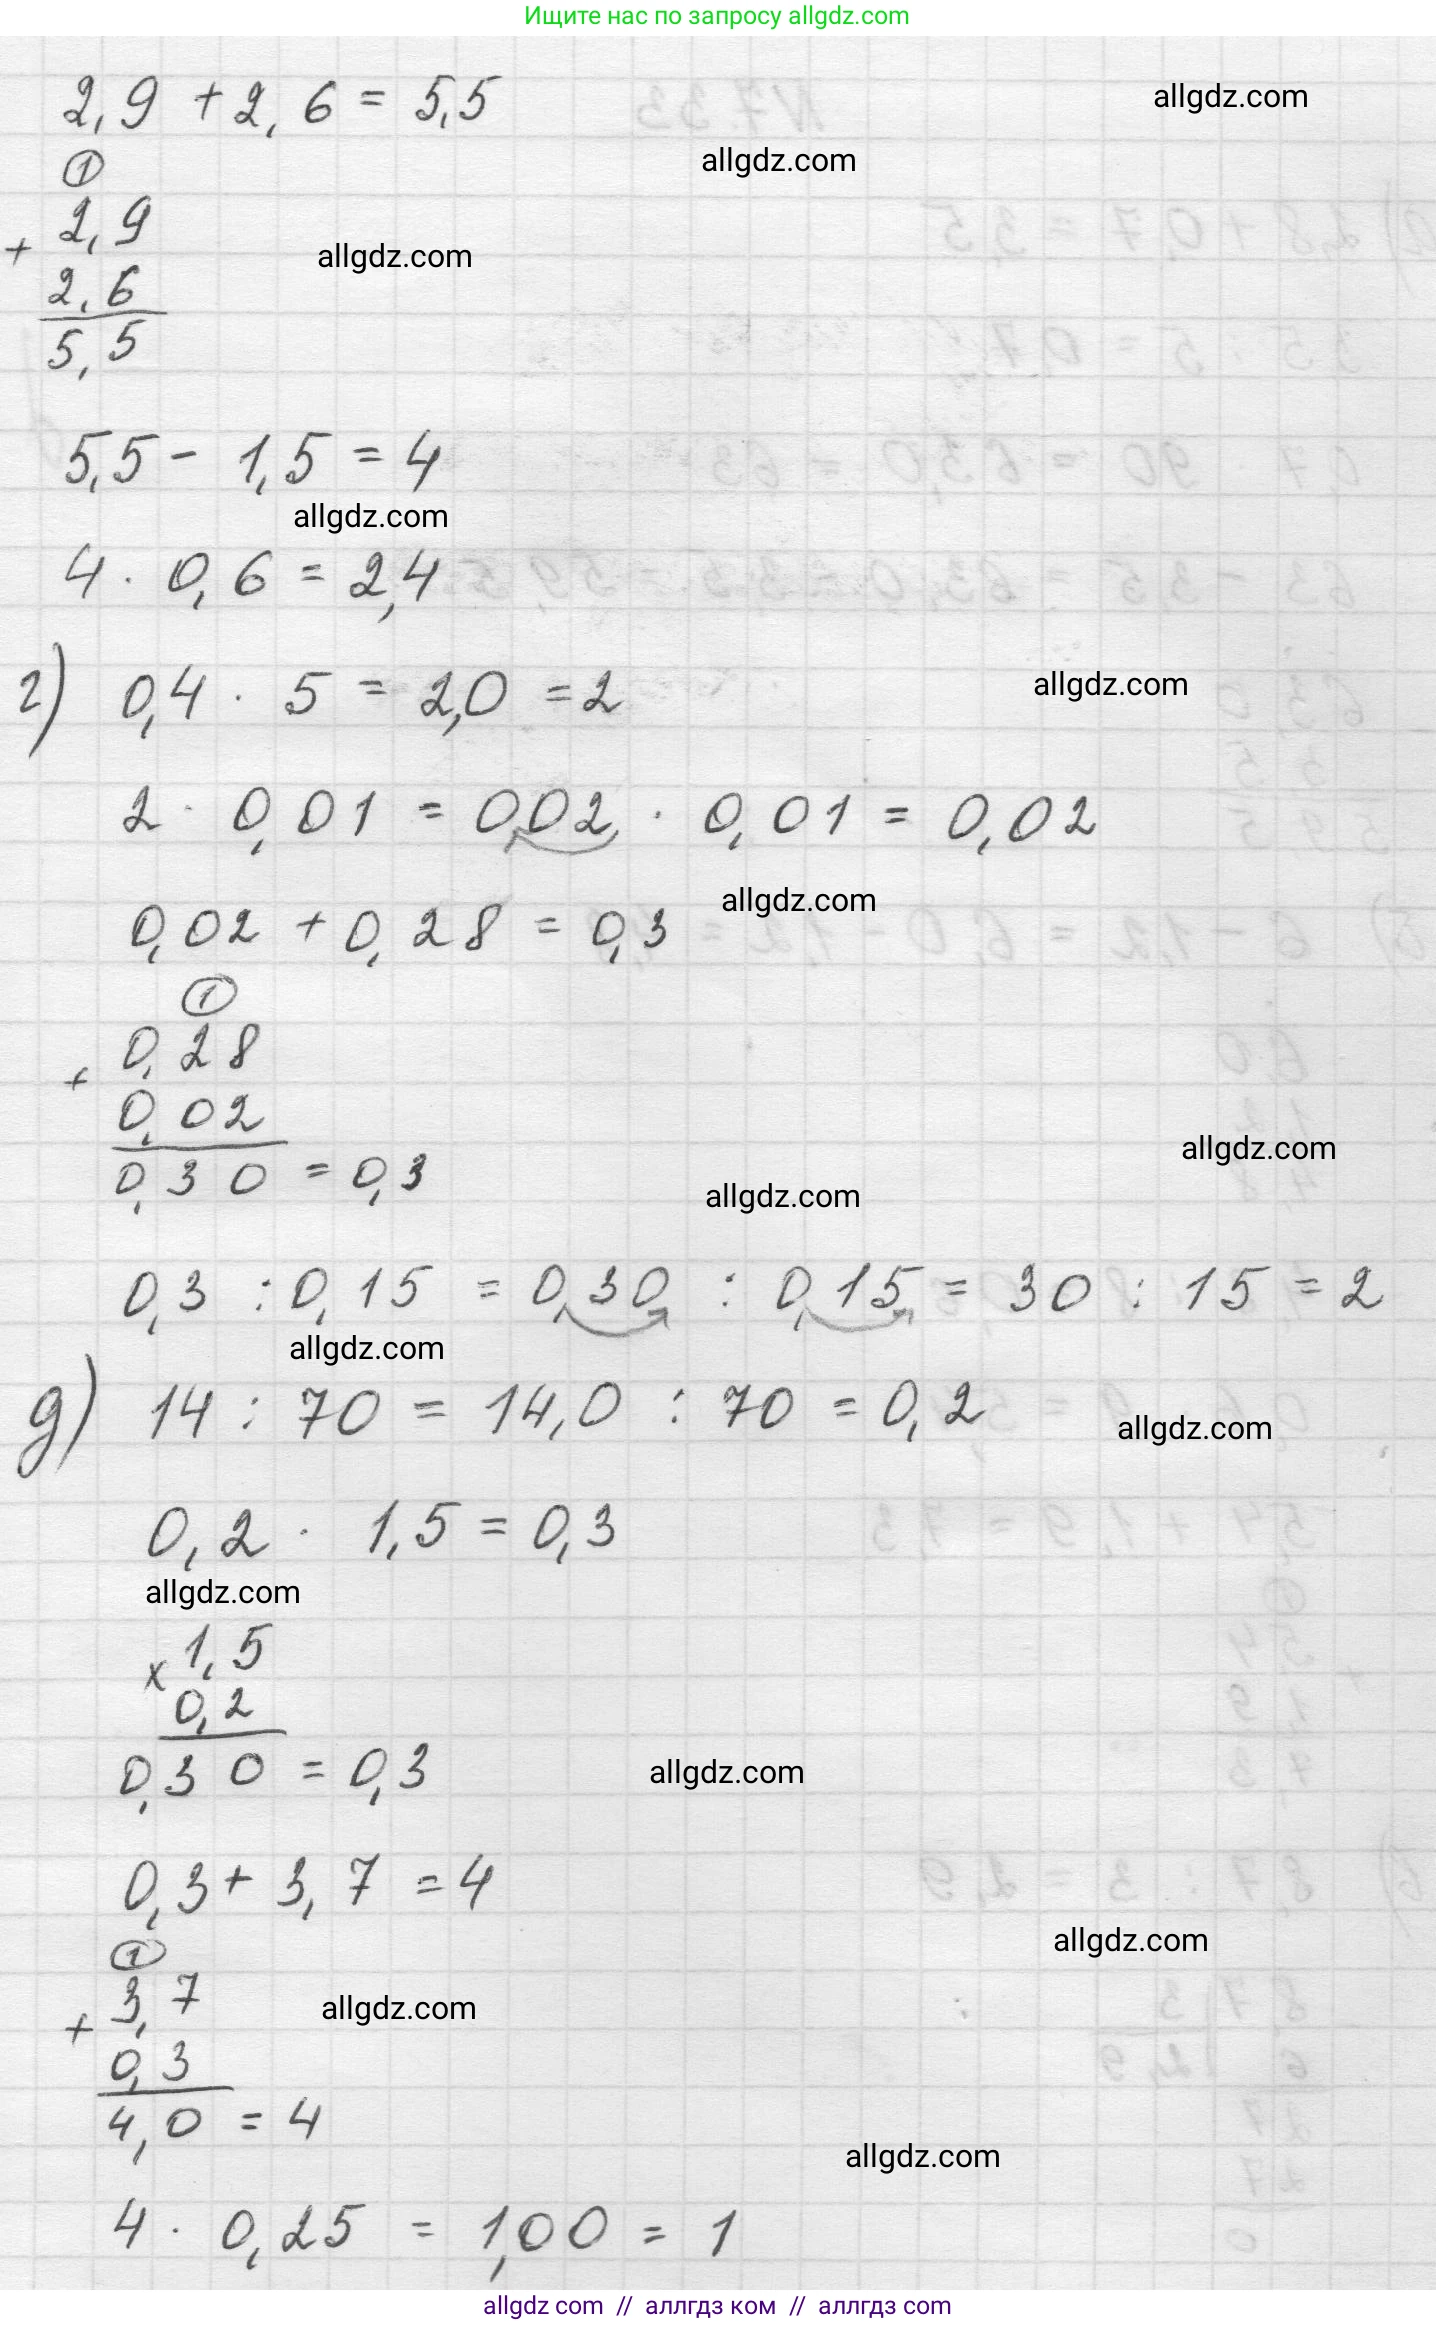 Ищите нас по запросу allgdz.com
2,9 + 2,6 = 5,5
allgdz.com
allgdz.com
①
+ 2,9
allgdz.com
2,6
5,5
5,5 - 1,5 = 4
allgdz.com
4 · 0,6 = 2,4
г) 0,4 · 5 = 2,0 = 2
allgdz.com
2 · 0,01 = 0,02, · 0,01 = 0,02
allgdz.com
0,02 + 0,28 = 0,3
①
+ 0,28
0,02
0,30 = 0,3
allgdz.com
allgdz.com
0,3 : 0,15 = 0,30 : 0,15 = 30 : 15 = 2
allgdz.com
д) 14 : 70 = 14,0 : 70 = 0,2
allgdz.com
0,2 · 1,5 = 0,3
allgdz.com
x 1,5
0,2
0,30 = 0,3
allgdz.com
0,3 + 3,7 = 4
allgdz.com
①
+ 3,7
allgdz.com
0,3
4,0 = 4
allgdz.com
4 · 0,25 = 1,00 = 1
allgdz com // аллгдз ком // аллгдз com